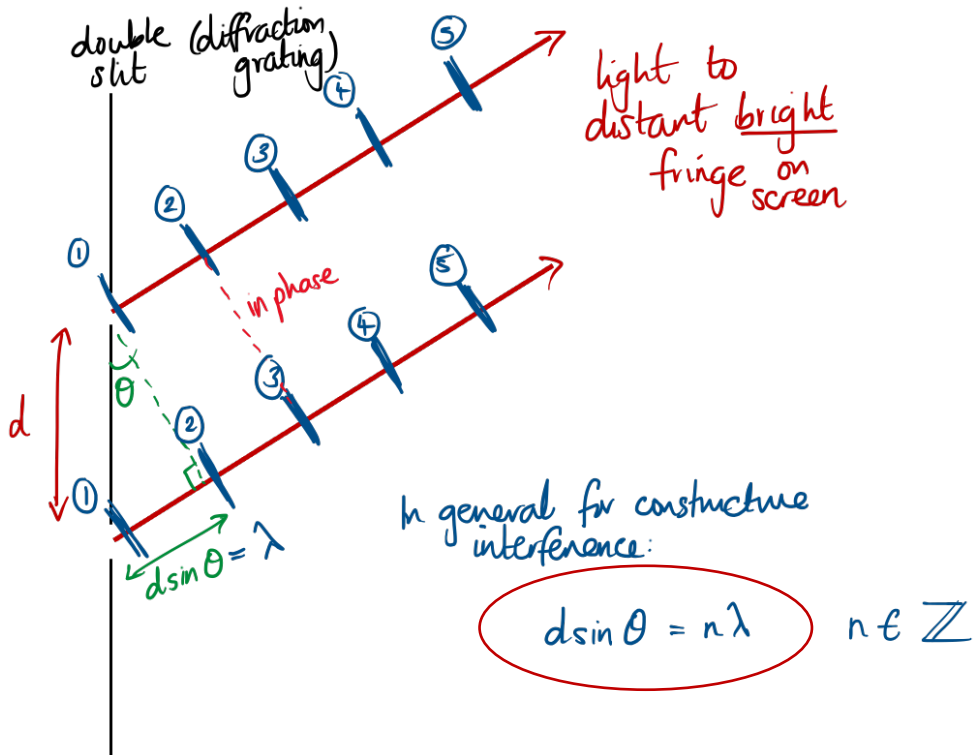 double (diffraction
slit grating)
light to
distant bright
fringe on
screen
①
②
③
④
⑤
in phase
d
θ
①
②
③
④
⑤
dsinθ = λ
In general for constructive
interference:
dsinθ = nλ n ∈ ℤ